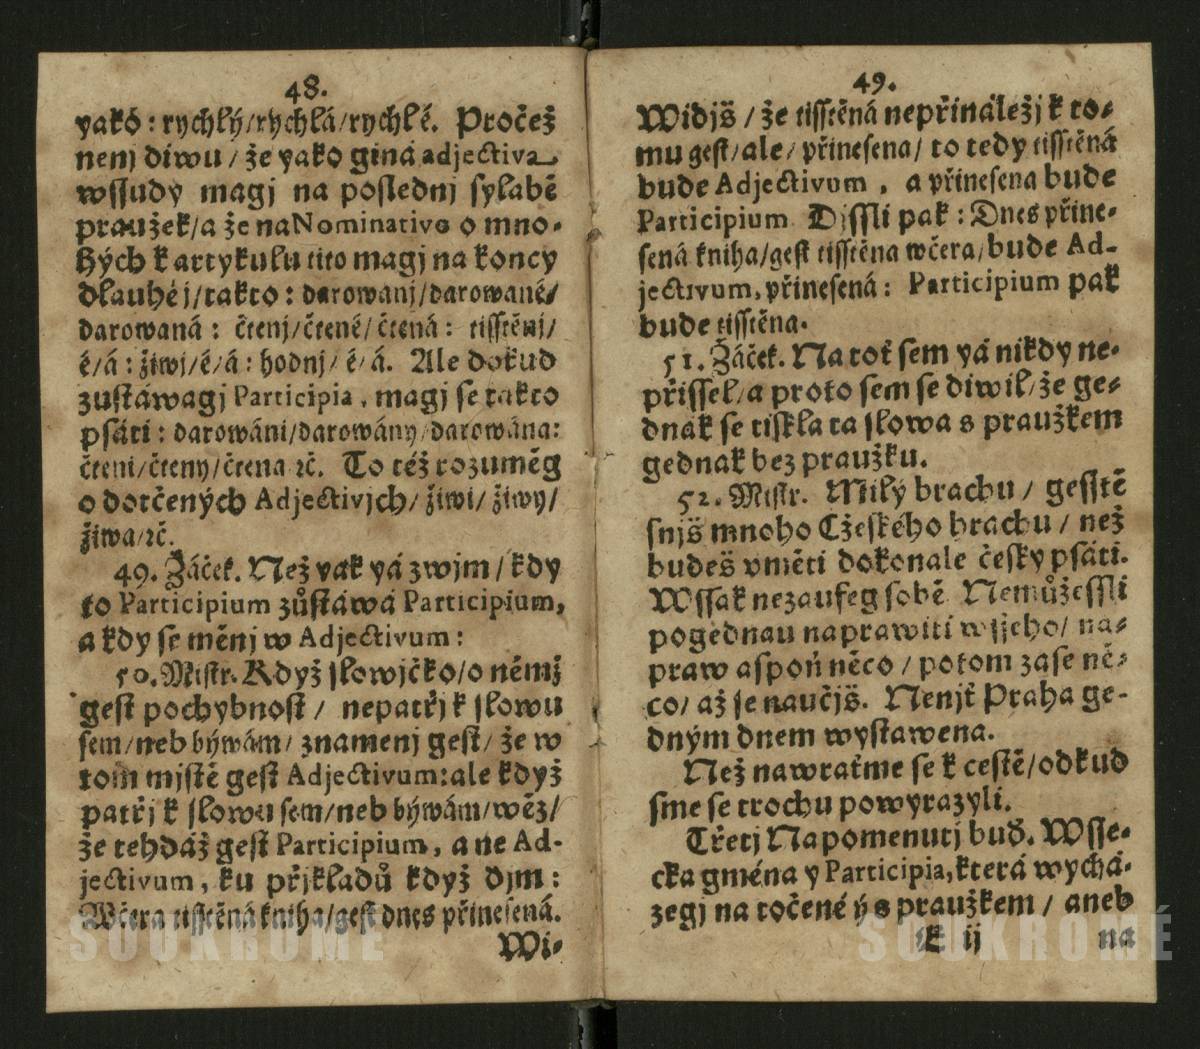 48.
yakó : rychlý/rychlá/rychlé. Pročež
nenj diwu / že yako giná adjectiva
wssudy magj na poslednj sylabě
praužek/a že na Nominativo o mno-
hých k artykulu tito magj na koncy
dlauhé j/takto : darowanj/darowané/
darowaná : čtenj/čtené/čtená : tisstěnj/
é/á : žiwj/é/á : hodnj/ é/á. Ale dokud
zustáwagj Participia, magj se takto
psáti : darowáni/darowány/darowána:
čteni/čteny/čtena ꝛč. To též rozuměg
o dotčených Adjectivjch/ žiwi/ žiwy/
žiwa/ꝛč.
49. Žáček. Než yak yá zwjm / kdy
to Participium zůstáwá Participium,
a kdy se měnj w Adjectivum:
50. Mistr. Když slowjčko/o němž
gest pochybnost / nepatřj k slowu
sem/neb býwám/ znamenj gest/ že w
tom mjstě gest Adjectivum: ale když
patřj k slowu sem/neb býwám/wěz/
že tehdáž gest Participium, a ne Ad-
jectivum, ku přjkladů když djm :
Wčera tisstěná kniha/gest dnes přinesená.
Wi-
49.
Widjš / že tisstěná nepřináležj k to-
mu gest/ale/ přinesena/ to tedy tisstěná
bude Adjectivum, a přinesena bude
Participium Djssli pak : Dnes přine-
sená kniha/gest tisstěna wčera/bude Ad-
jectivum, přinesená : Participium pak
bude tisstěna.
51. Žáček. Na toť sem yá nikdy ne-
přissel/a proto sem se diwil/že ge-
dnak se tiskla ta slowa s praužkem
gednak bez praužku.
52. Mistr. Milý brachu / gesstě
snjš mnoho Cžeského hrachu / než
budeš vměti dokonale česky psáti.
Wssak nezaufeg sobě Nemůžessli
pogednau naprawiti wsseho/ na-
praw aspoň něco / potom zase ně-
co/ až se naučjš. Nenjť Praha ge-
dným dnem wystawena.
Než nawraťme se k cestě/odkud
sme se trochu powyrazyli.
Třetj Napomenutj buď. Wsse-
cka gména y Participia, která wychá-
zegj na točené ý s praužkem / aneb
E ij na